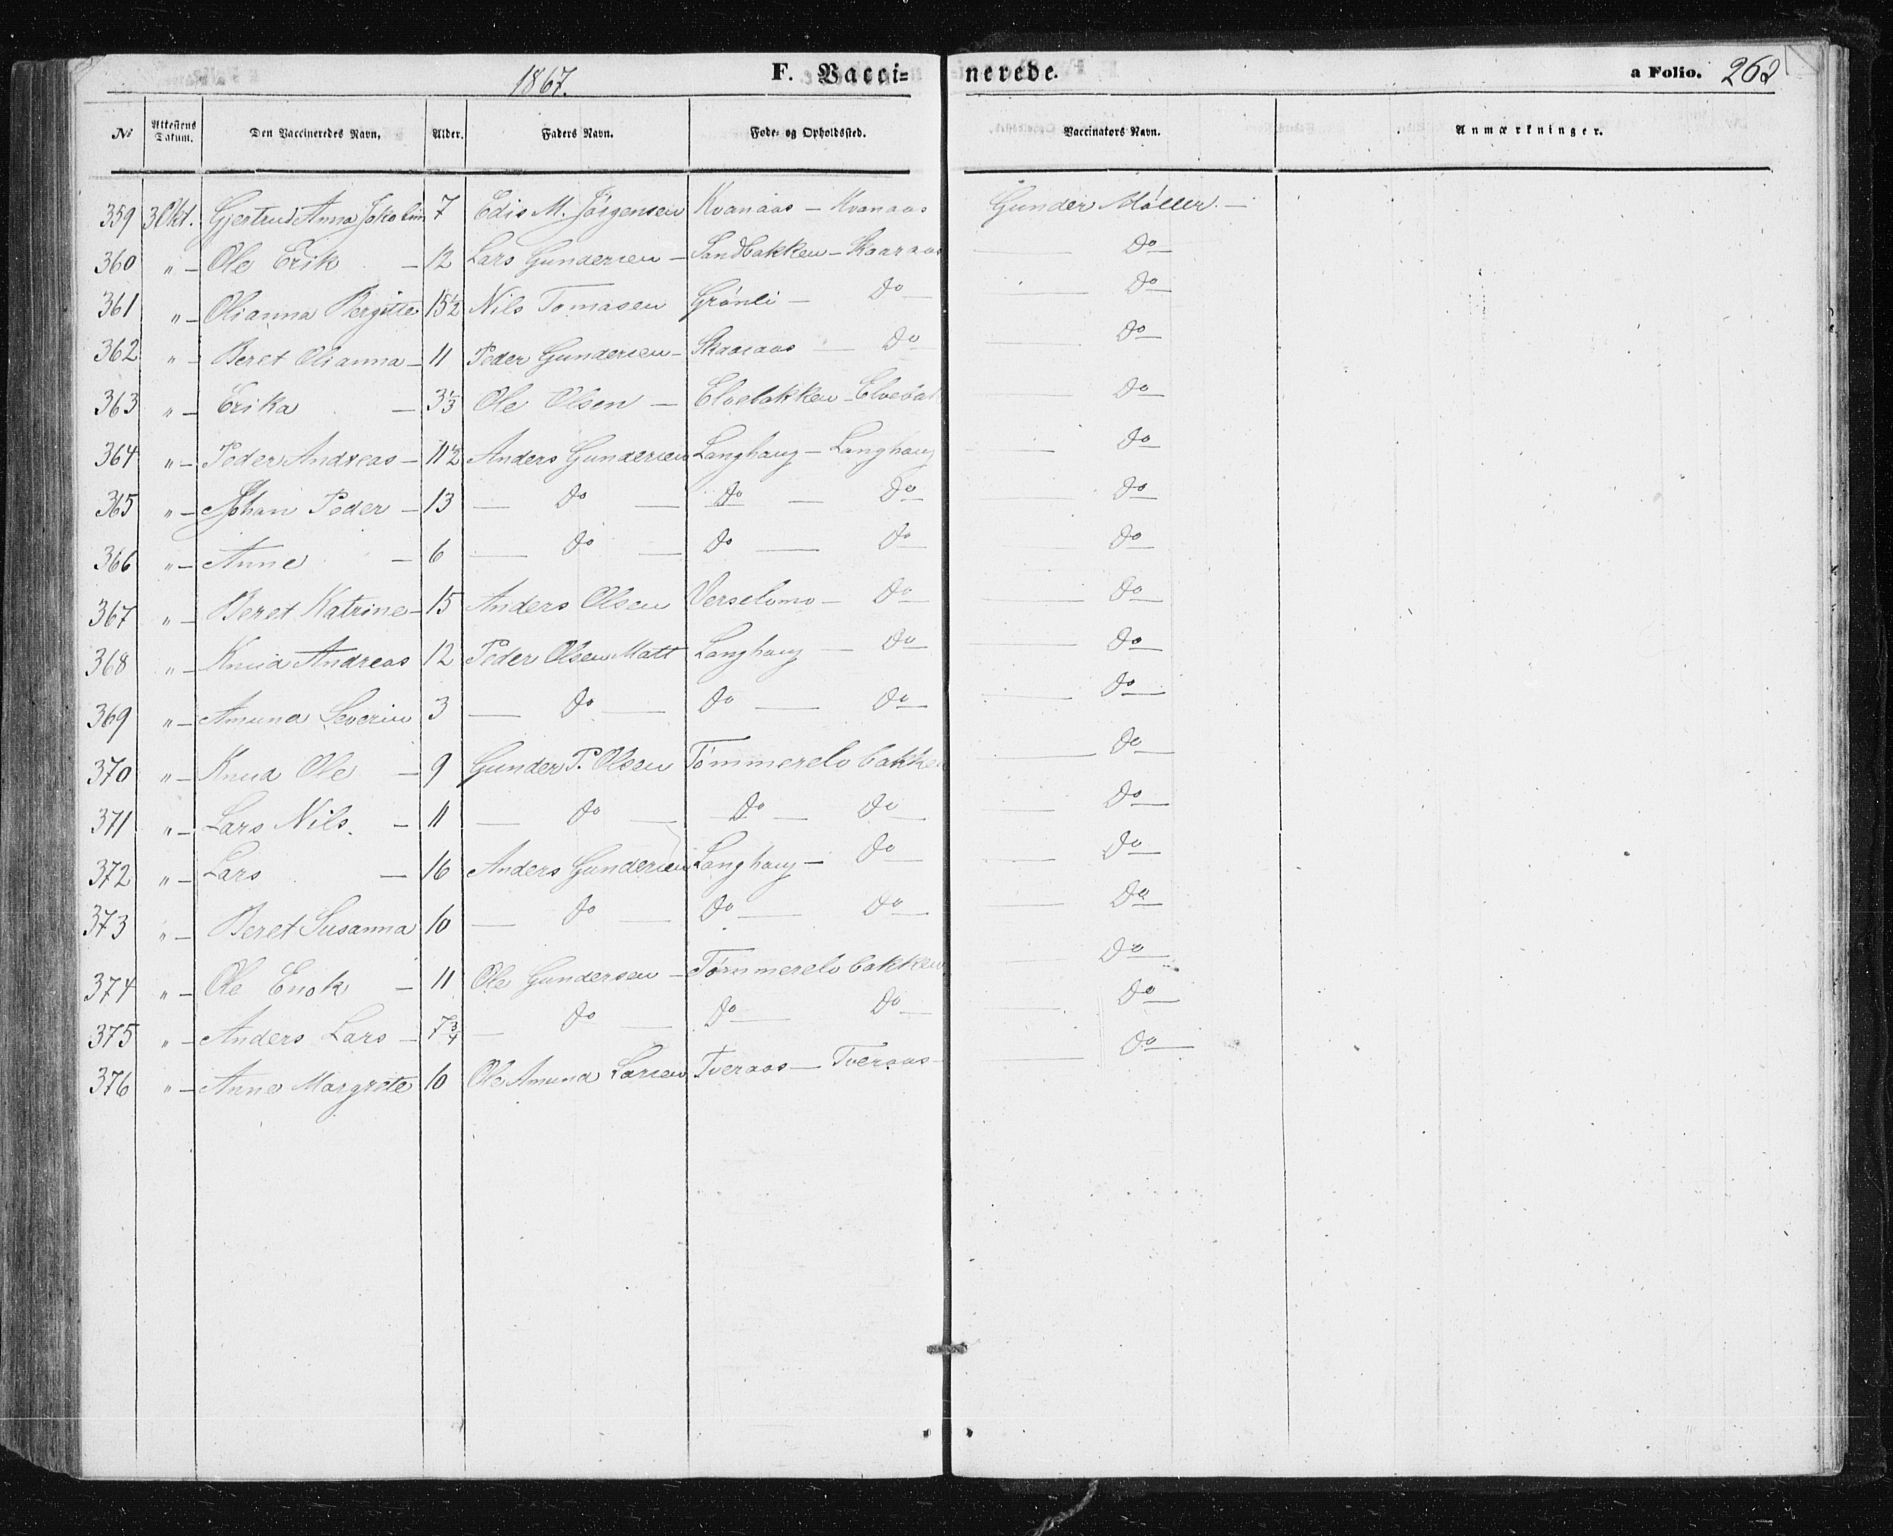 1867.
F. Vacci=nerede.
a Folio. 262
No Attestens Datum. Den Vaccineredes Navn. Alder. Faders Navn. Føde- og Opholdssted. Vaccinators Navn. Anmærkninger.
359 3 Okt. Gjertrud Anna Jakolin 7 Edis M. Jörgensen Kvanaas – Kvanaas Gunder Möller. –
360 " – Ole Erik – 12 Lars Gundersen – Sandbakken – Skaaraas – Do –
361 " – Olianna Bergitte 15 1/2 Nils Tomasen Grönli – Do – – Do –
362 " – Beret Olianna – 11 Peder Gundersen – Skaaraas – Do – Do –
363 " – Erika – 3 1/3 Ole Olsen – Elvebakken – Elvebak – Do –
364 " – Peder Andreas – 11 1/2 Anders Gundersen Langhaug – Langhaug – Do –
365 " – Johan Peder – 13 – Do – Do – Do – Do –
366 " – Anne – 6 – Do – Do – Do – Do –
367 " – Beret Katrine – 15 Anders Olsen Verselvmo – Do – – Do –
368 " – Knud Andreas 12 Peder Olsen Matt Langhaug – Do – Do –
369 " – Amund Severin 3 – Do – Do – Do – Do –
370 " – Knud Ole – 9 Gunder P. Olsen Tömmerelv bakken – Do –
371 " – Lars Nils. – 11 – Do – Do – Do – – Do –
372 " – Lars – 16 Anders Gundersen Langhaug – Do – – Do –
373 " – Beret Susanna 10 – Do – Do – Do – – Do –
374 " – Ole Enok – 11 Ole Gundersen – Tömmerelv bakken – Do –
375 " – Anders Lars – 7 3/4 – Do – Do – Do – – Do –
376 " – Anne Margrete 10 Ole Amund Larsen Tveraas – Tveraas – – Do –